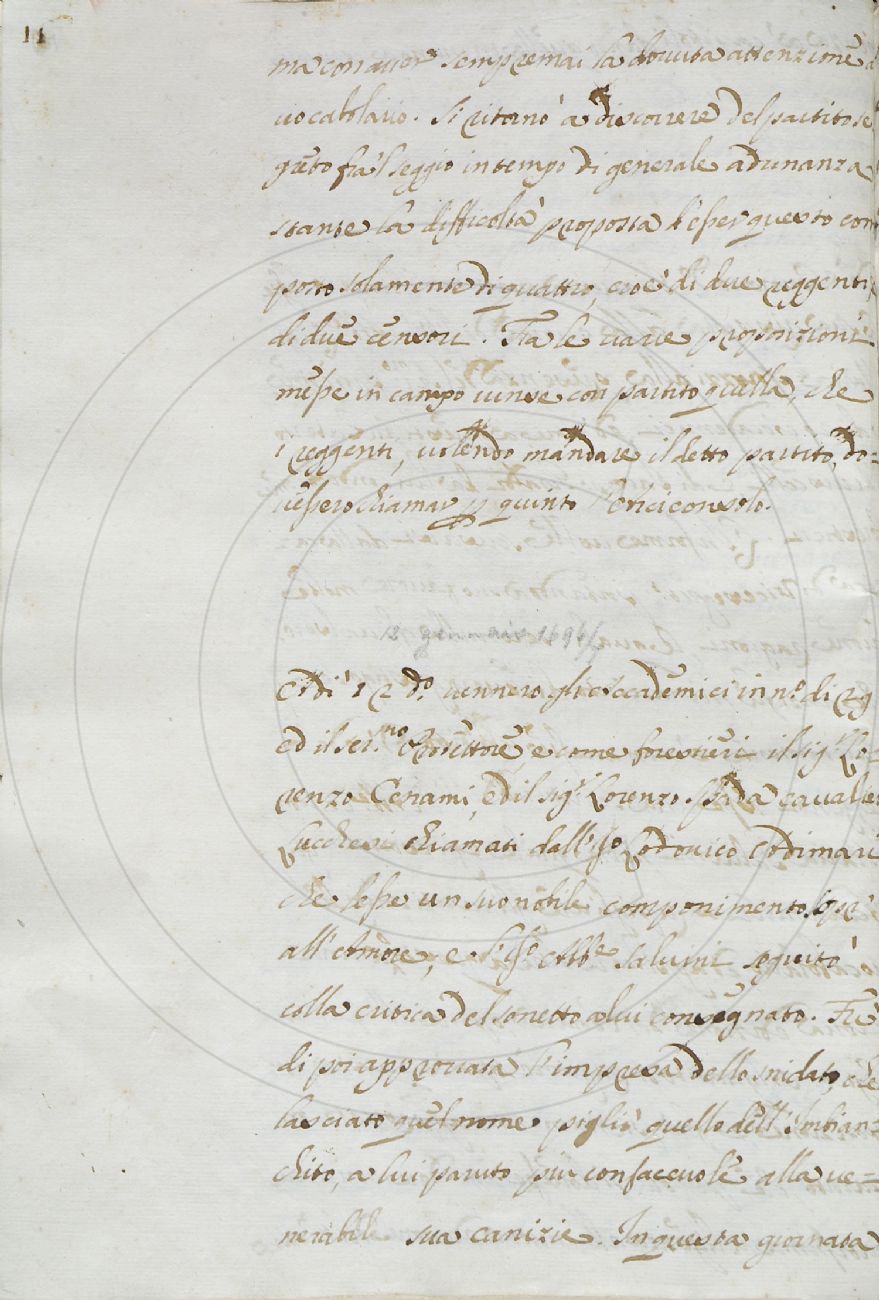 11
ma con aver sempre mai la dovuta attenzione a
vocabolario. Si ritornò a discorrere del partito se
greto fra 'l seggio in tempo di generale adunanza
stante la difficoltà proposta l'esser questo com
posto solamente di quattro, cioè di due reggenti,
di due censori. Fra le varie proposizioni
messe in campo vinse con partito quella, che
i reggenti, volendo mandare il detto partito, do=
vessero chiamar p quinto l'Arciconsolo.
12 gennaio 1696/
Adì 12 dº. vennero gli Accademici in nº. di 29
ed il ser.mo Protettore, e come forestieri il sig.r Lo=
renzo Cenami, ed il sig.r Lorenzo Spada cavalier
Lucchesi chiamati dall' Lodovico Adimari
che lesse un suo nobile componimento sopra
all'Amore, e l' Abb.e Salvini seguitò
colla critica del sonetto a lui consegnato. Fu
di poi approvata l'impresa dello snidato, che
lasciato quel nome pigliò quello dell'Imbian=
chito, a lui paruto più confacevole alla ve=
nerabile sua canizie. In questa giornata